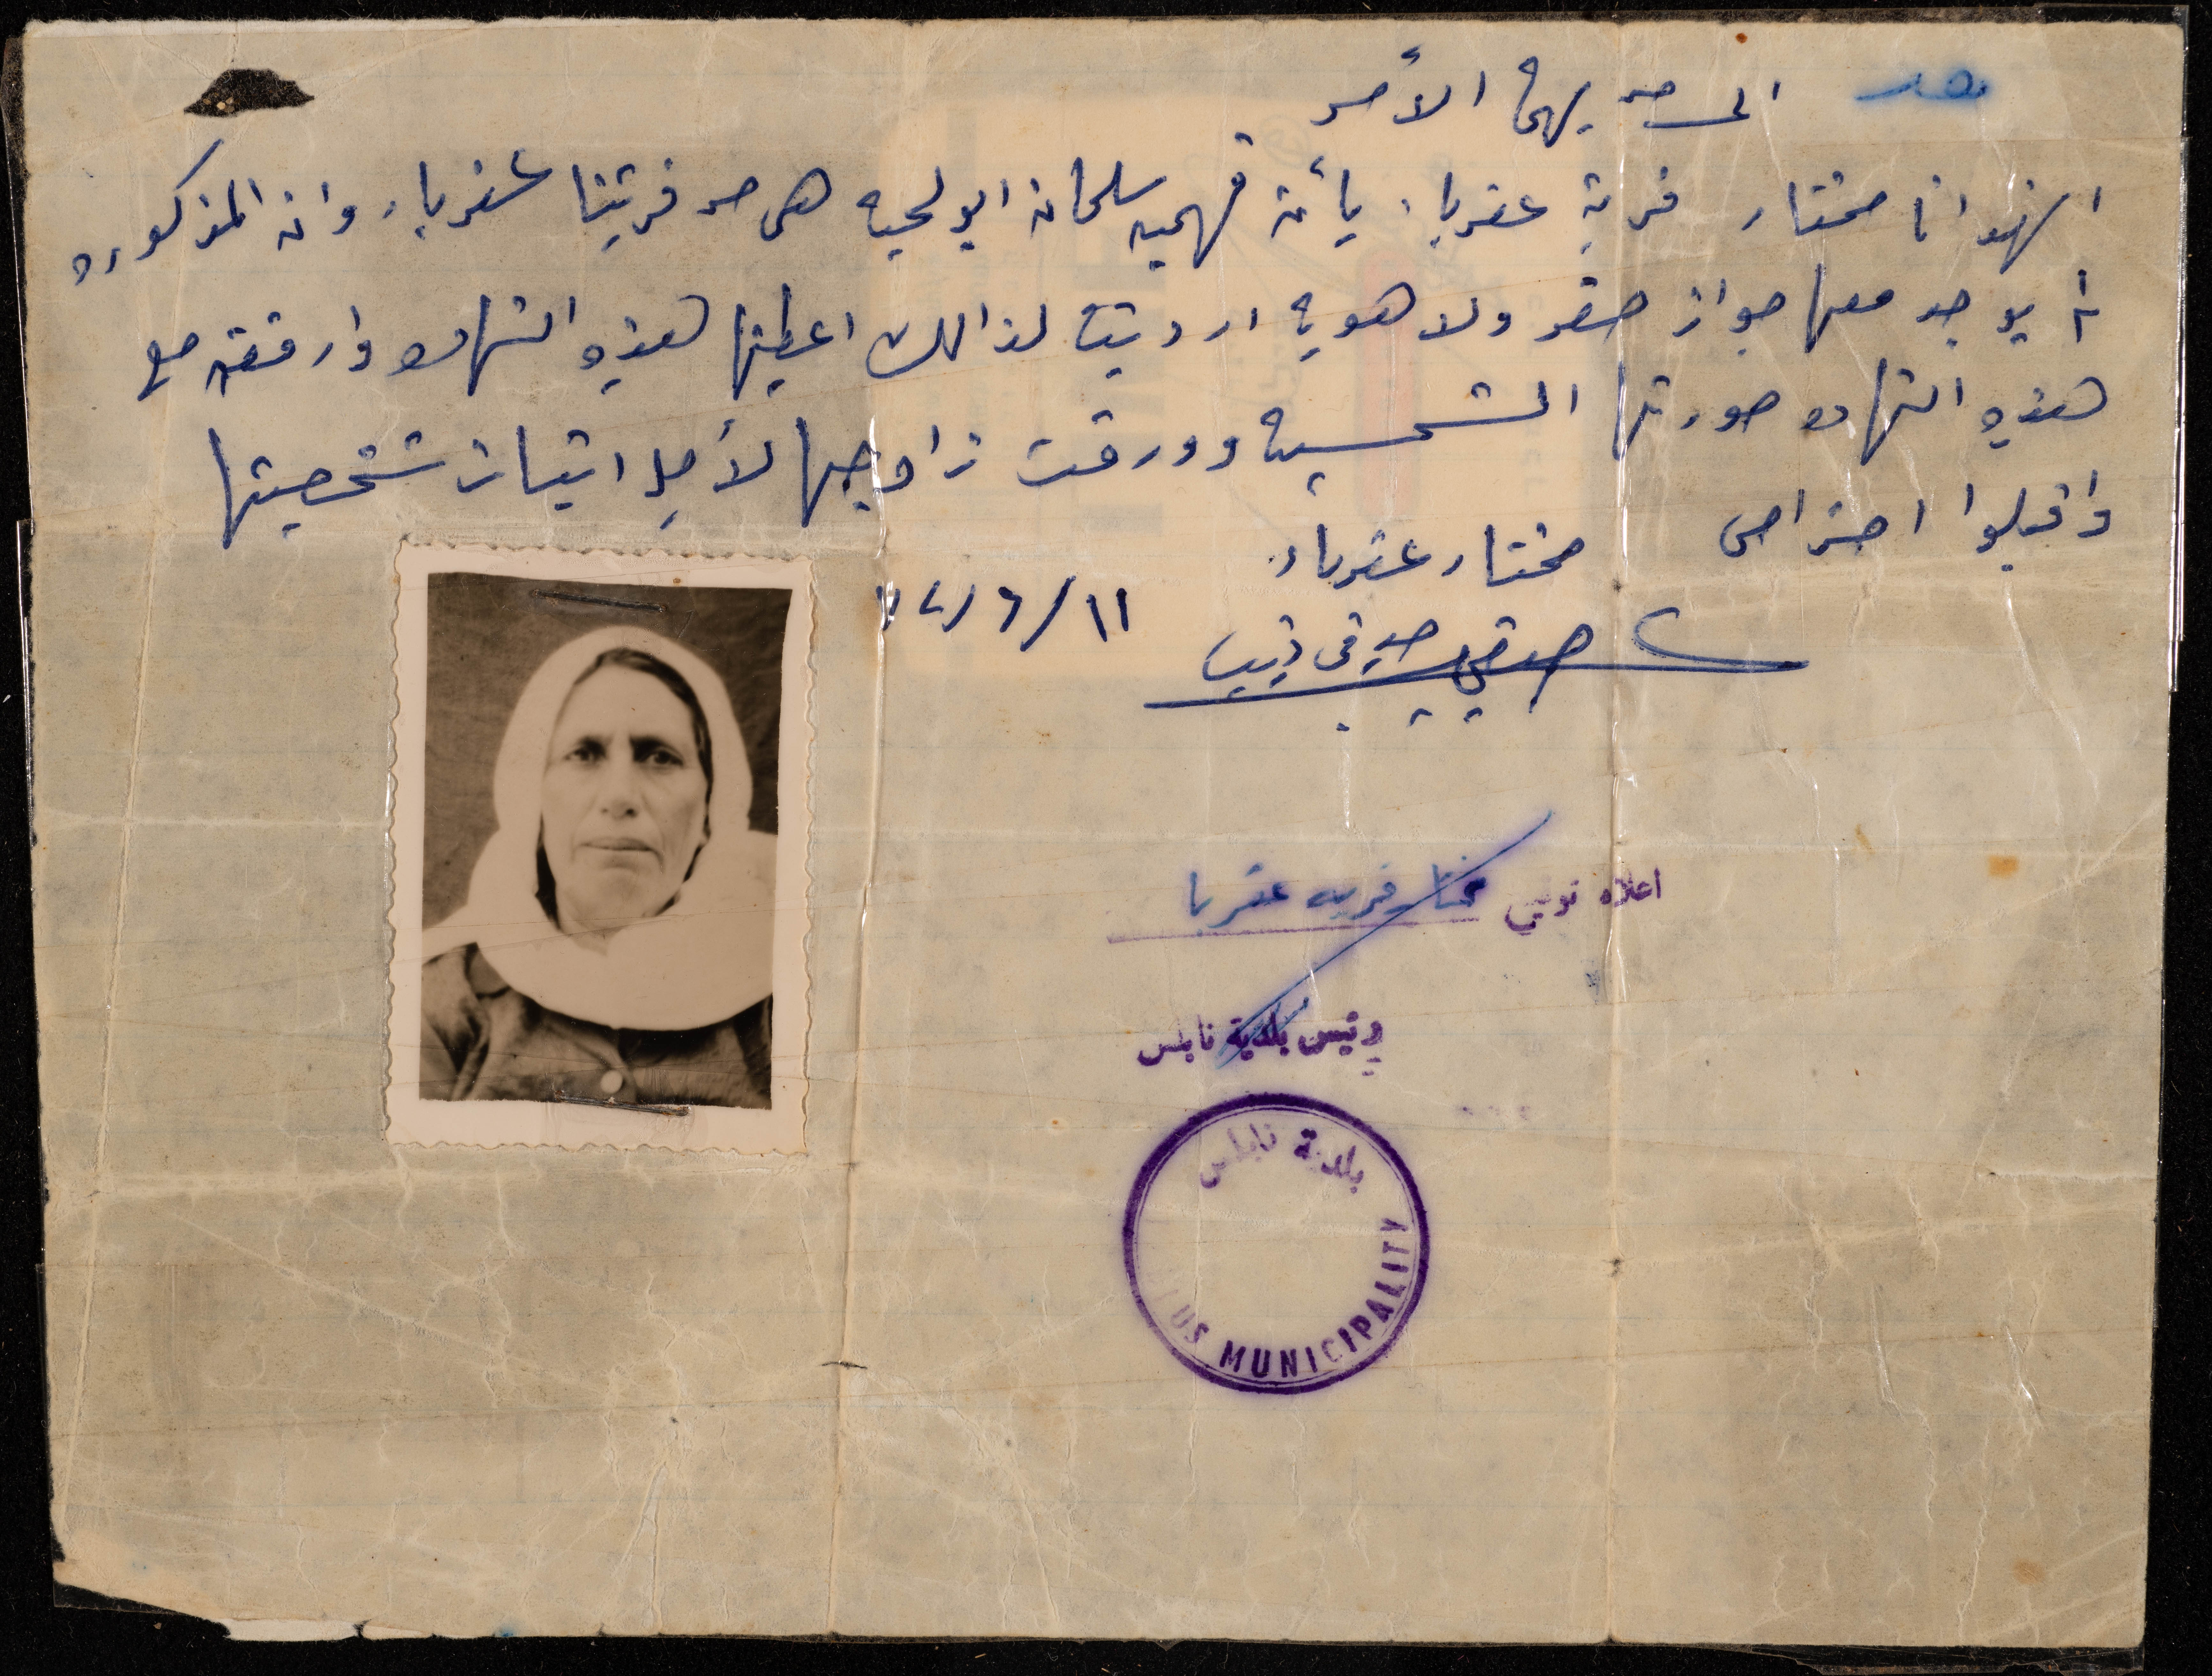 الى من يهمه الأمر
اشهد انا مختار قرية عقربا، بأن فهميه سلمان ابو لحيه هي من قريتنا عقرباء وان المذكوره
لا يوجد معها جواز صفر ولا هويه اردنيه لذالك اعطيتها هذه الشهاده وارفقت مع
هذه الشهاده صورتها الشمسيه وورقت زاوجها لأجل اتبات شخصيتها
واقبلوا احترامي
مختار عقرباء
٧٤/٦/١١
صدقي
اعلاه توقيع مختار قريه عقربا
رئيس بلدية نابلس
بلدية نابلس
US MUNICIPALITY